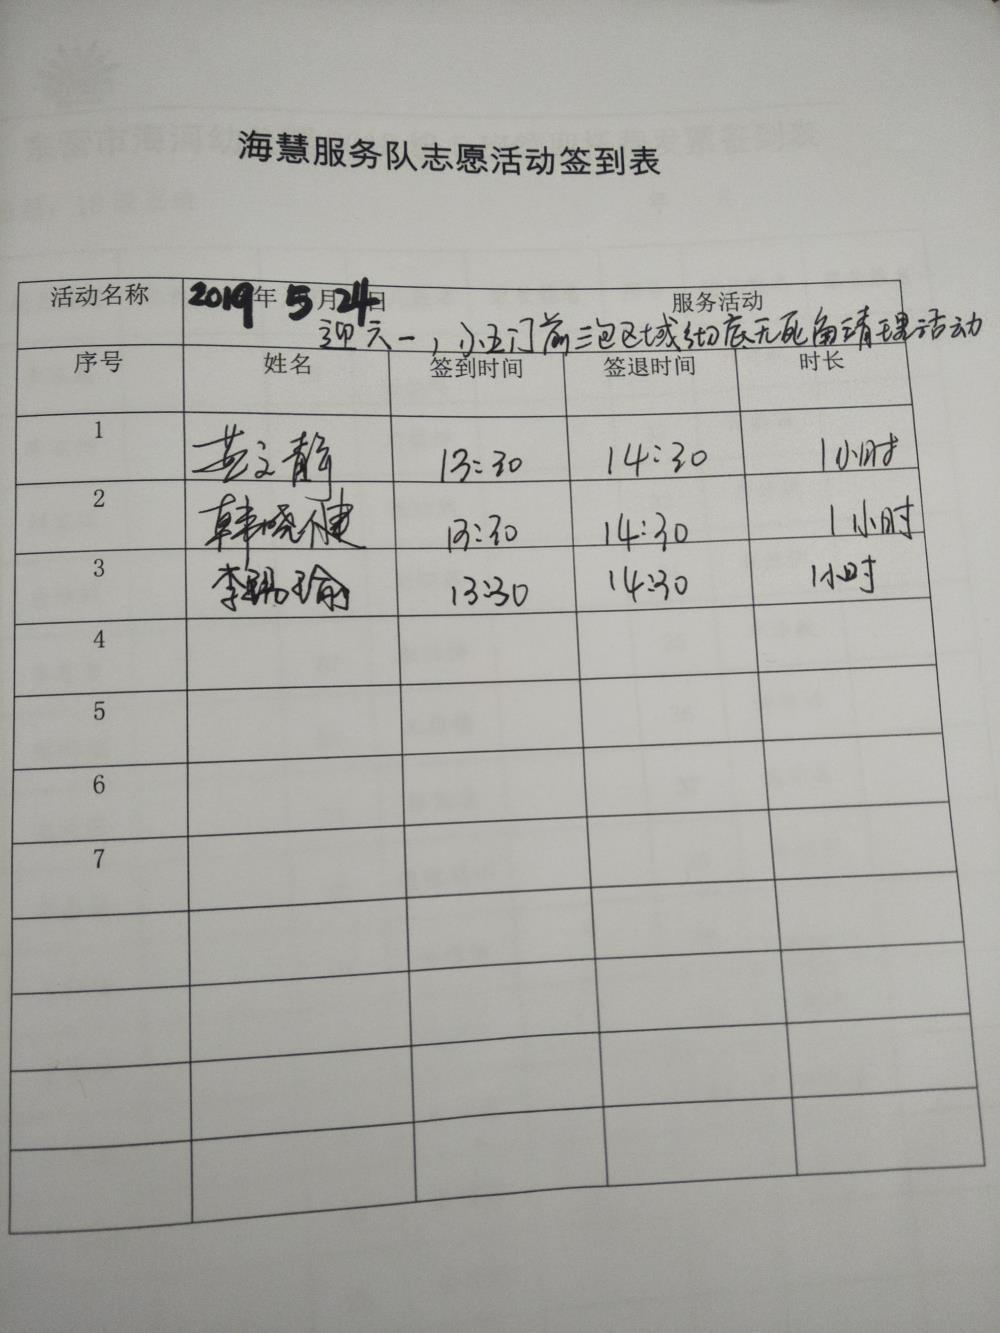 海慧服务队志愿活动签到表
活动名称 2019年 5月24日 服务活动
迎六一，小五门前三包区域彻底无死角清理活动
序号 姓名 签到时间 签退时间 时长
1 黄文静 13:30 14:30 1小时
2 韩晓健 13:30 14:30 1小时
3 李瑜 13:30 14:30 1小时
4
5
6
7